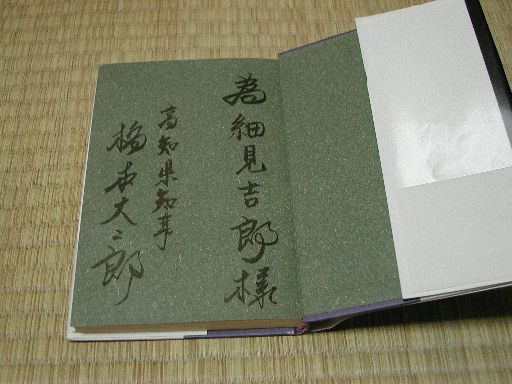 為細見吉郎様
高知県知事
橋本大二郎